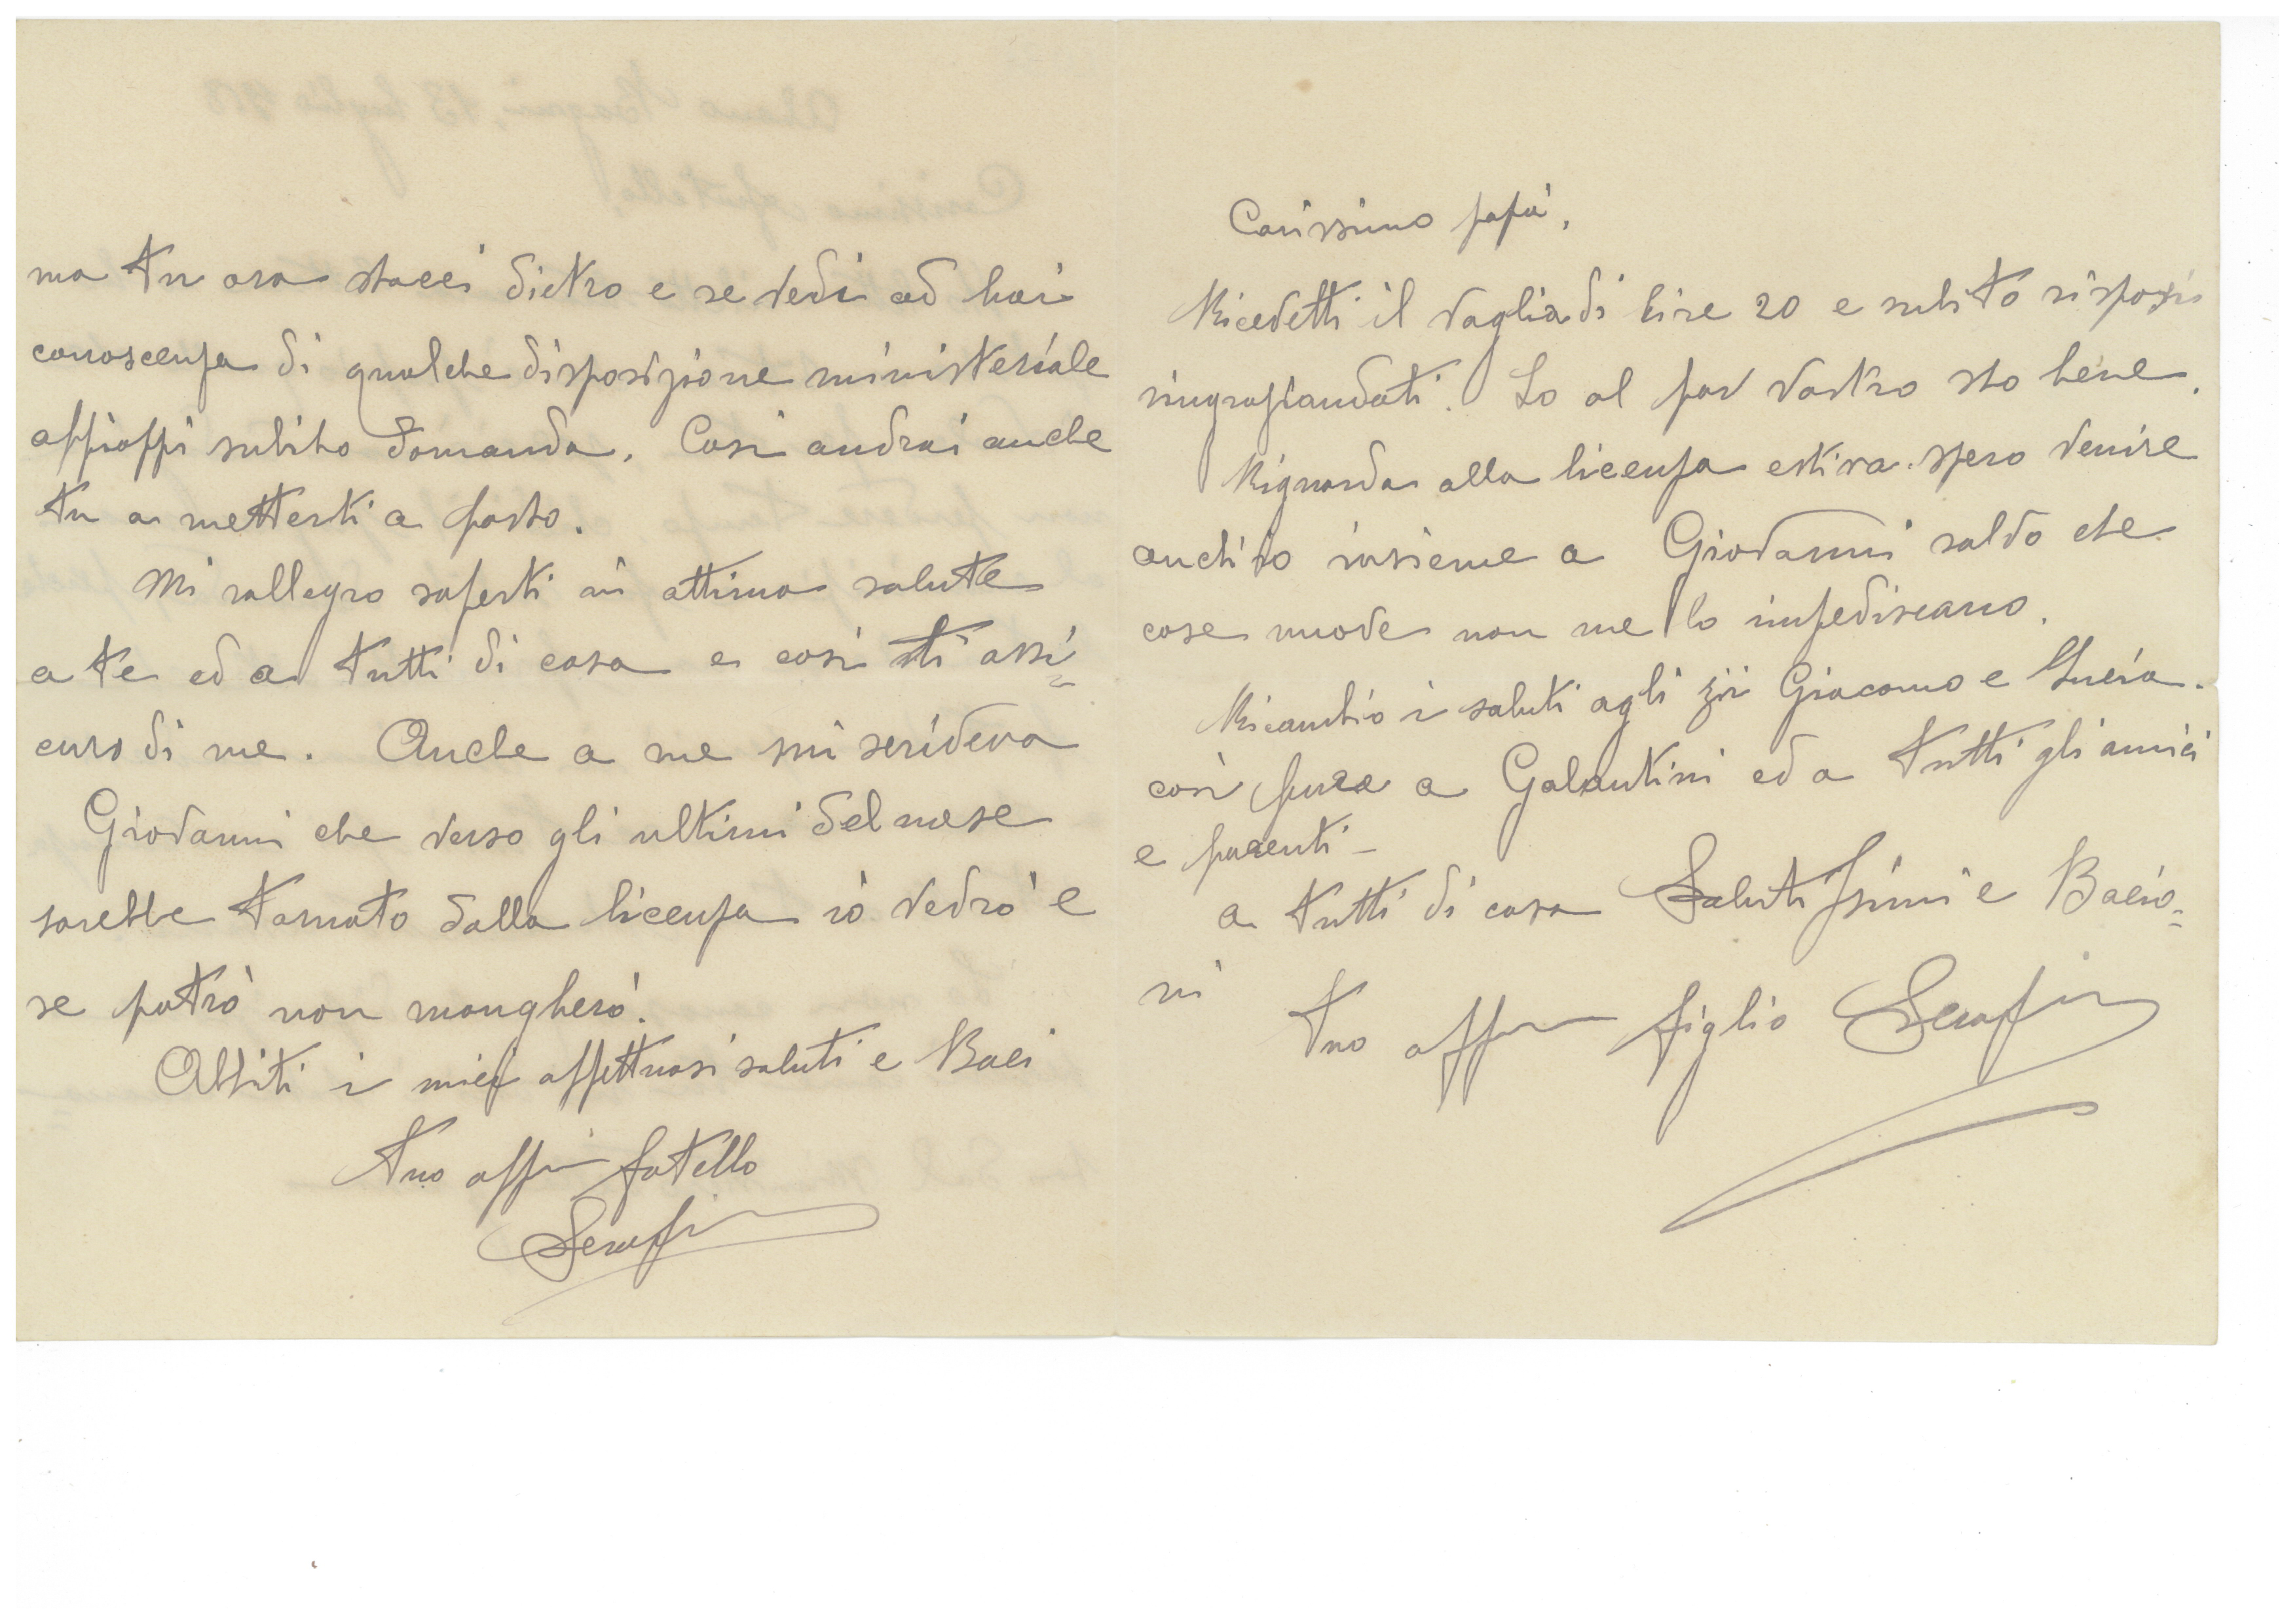 ma tu ora stacci dietro e se vedi ad hai
conoscenza di qualche disposizione ministeriale
affioppi subito domanda. Così andrai anche
tu a metterti a posto.
Mi rallegro saperti in ottima salute
a te ed a tutti di casa e così ti assi=
curo di me. Anche a me mi scriveva
Giovanni che verso gli ultimi del mese
sarebbe tornato dalla licenza io vedrò e
se potrò non mangherò.
Abbiti i miei affettuosi saluti e Baci
Tuo affmo fatello
Serafino
Carissimo papà,
Ricevetti il vaglia di lire 20 e subito risposi
ringraziandoti. Io al par vostro sto bene.
Riguardo alla licenza estiva spero venire
anch'io insieme a Giovanni salvo che
cose nuove non me lo impediscano.
Ricambio i saluti agli zii Giacomo e Lucia.
così pure a Galantini ed a tutti gli amici
e parenti -
a tutti di casa Salutissimi e Bacio=
ni
Tuo affmo figlio Serafino